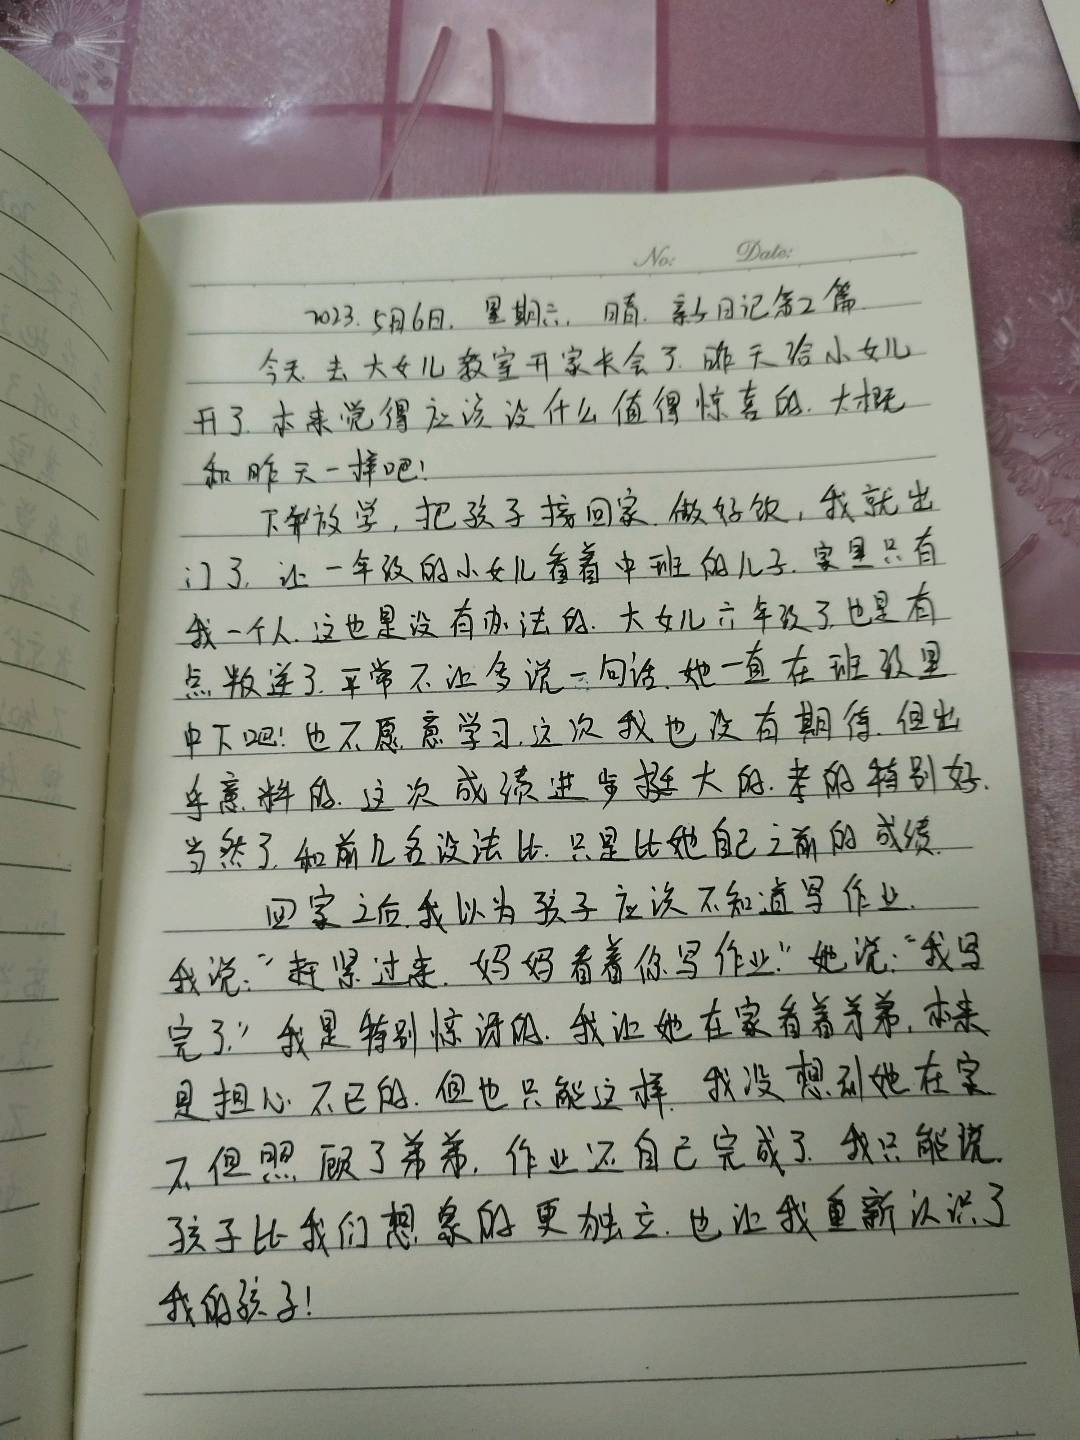 No: Date:
2023.5月6日. 星期六. 晴. 新日记第2篇.
今天去大女儿教室开家长会了.昨天给小女儿
开了.本来觉得应该没什么值得惊喜的.大概
和昨天一样吧!
下午放学,把孩子接回家.做好饭,我就出
门了.让一年级的小女儿看着中班的儿子.家里只有
我一个人.这也是没有办法的.大女儿六年级了.也是有
点叛逆了.平常不让多说一句话.她一直在班级里
中下吧!也不愿意学习.这次我也没有期待.但出
乎意料的.这次成绩进步挺大的.考的特别好.
当然了.和前几名没法比.只是比她自己之前的成绩.
回家之后.我以为孩子应该不知道写作业.
我说:"赶紧过来.妈妈看着你写作业."她说:"我写
完了."我是特别惊讶的.我让她在家看着弟弟,本来
是担心不已的.但也只能这样.我没想到她在家
不但照顾了弟弟,作业还自己完成了.我只能说.
孩子比我们想象的更独立.也让我重新认识了
我的孩子!